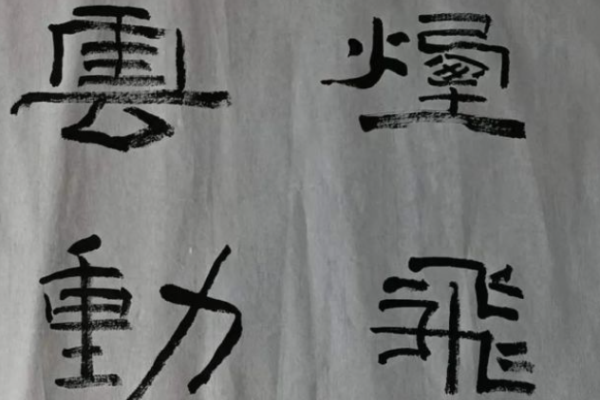 煙飛
雲動